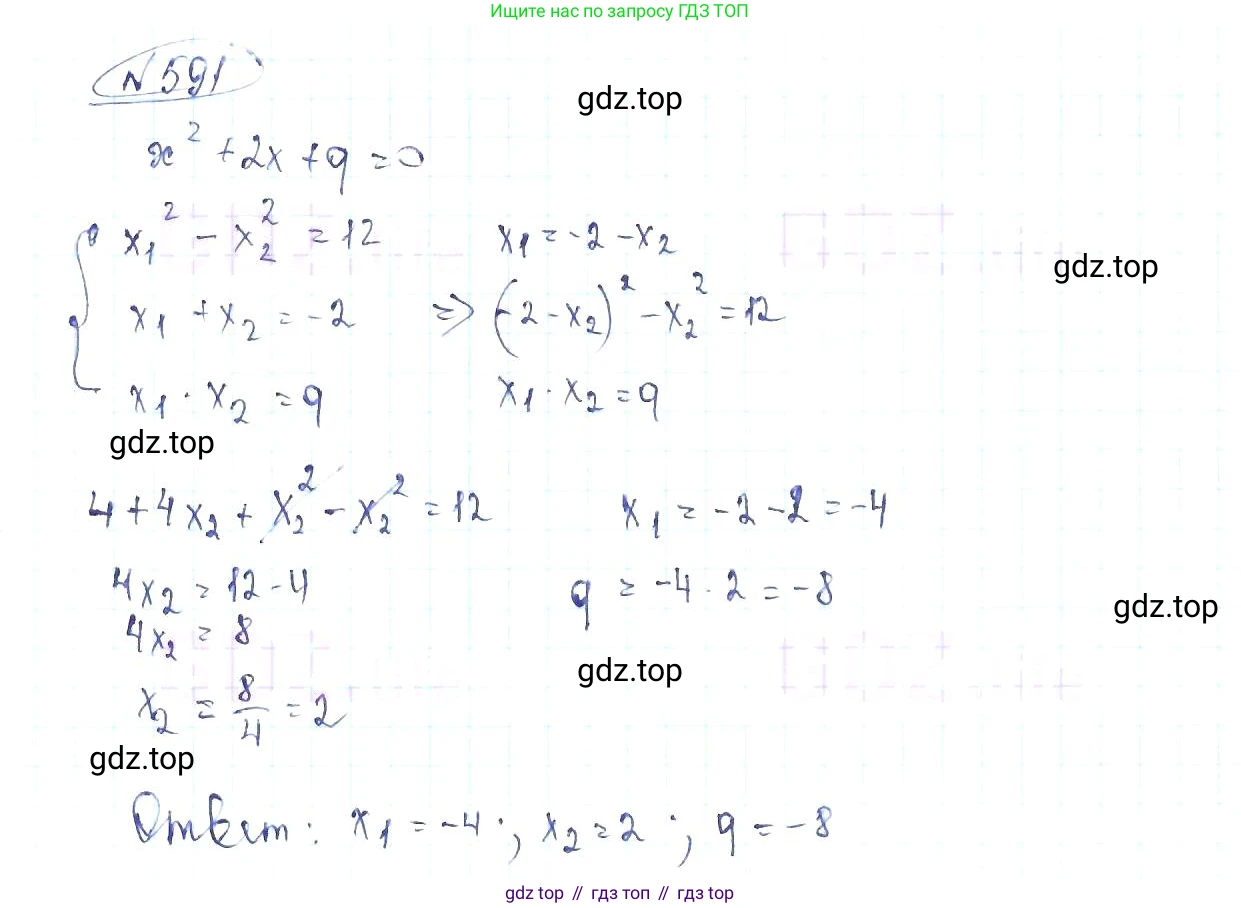 Ищите нас по запросу ГДЗ ТОП
№ 591
gdz.top
x² + 2x + q = 0
x₁² - x₂² = 12
x₁ = -2 - x₂
gdz.top
x₁ + x₂ = -2
=> (-2 - x₂)² - x₂² = 12
x₁ · x₂ = q
x₁ · x₂ = q
gdz.top
4 + 4x₂ + x₂² - x₂² = 12
x₁ = -2 - 2 = -4
4x₂ = 12 - 4
q = -4 · 2 = -8
gdz.top
4x₂ = 8
gdz.top
x₂ = 8/4 = 2
gdz.top
Ответ: x₁ = -4; x₂ = 2; q = -8
gdz top // гдз топ // gdz top